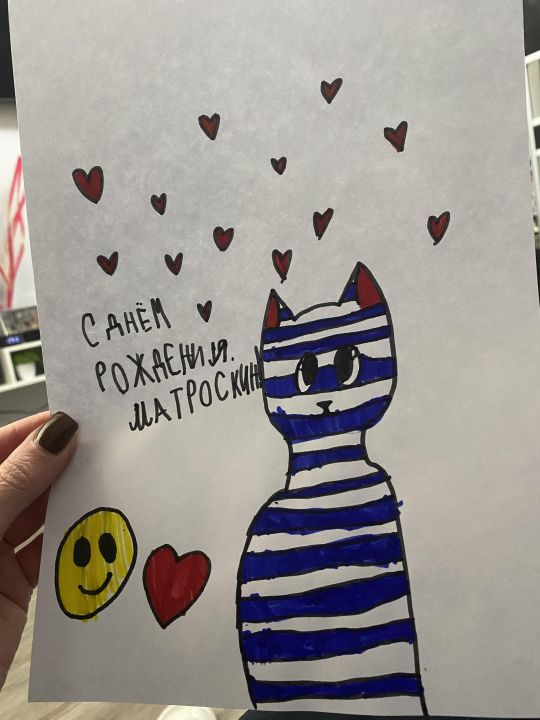 С ДНЁМ
РОЖДЕНИЯ.
МАТРОСКИН!